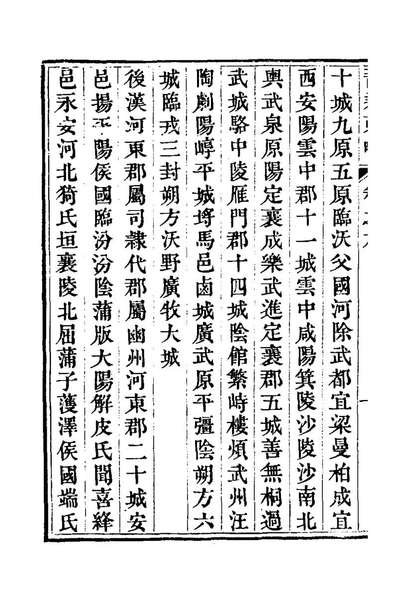 十城九原五原臨沃父國河除武都宜梁曼柏成宜
西安陽雲中郡十一城雲中咸陽箕陵沙陵沙南北
輿武泉原陽定襄成樂武進定襄郡五城善無桐過
武城駱中陵雁門郡十四城陰館繁峙樓煩武州汪
陶劇陽崞平城埓馬邑鹵城廣武原平彊陰朔方六
城臨戎三封朔方沃野廣牧大城
後漢河東郡屬司隸代郡屬幽州河東郡二十城安
邑揚平陽侯國臨汾汾陰蒲版大陽解皮氏聞喜絳
邑永安河北猗氏垣襄陵北屈蒲子蒦澤侯國端氏